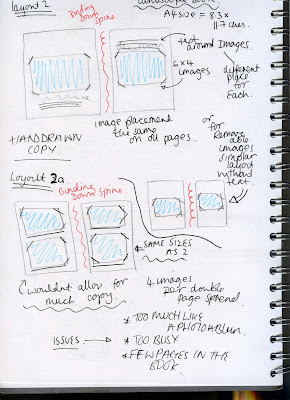 Layout 2
Binding
Down
Spine.
A4 size = 8.3 x
11.7
text
around Images.
6x4
images
different
place
for
Each.
image placement
the same
on all pages.
HANDDRAWN
COPY.
or
for
Remove
able
images
simular
layout
without
text
Layout 2a
Binding
Down Spine.
SAME SIZES
AS 2
(wouldnt allow for
much copy.
4 images
per double
page spread
ISSUES
* TOO MUCH LIKE
A PHOTO ALBUM
* TOO BUSY
* FEW PAGES IN THE
BOOK.